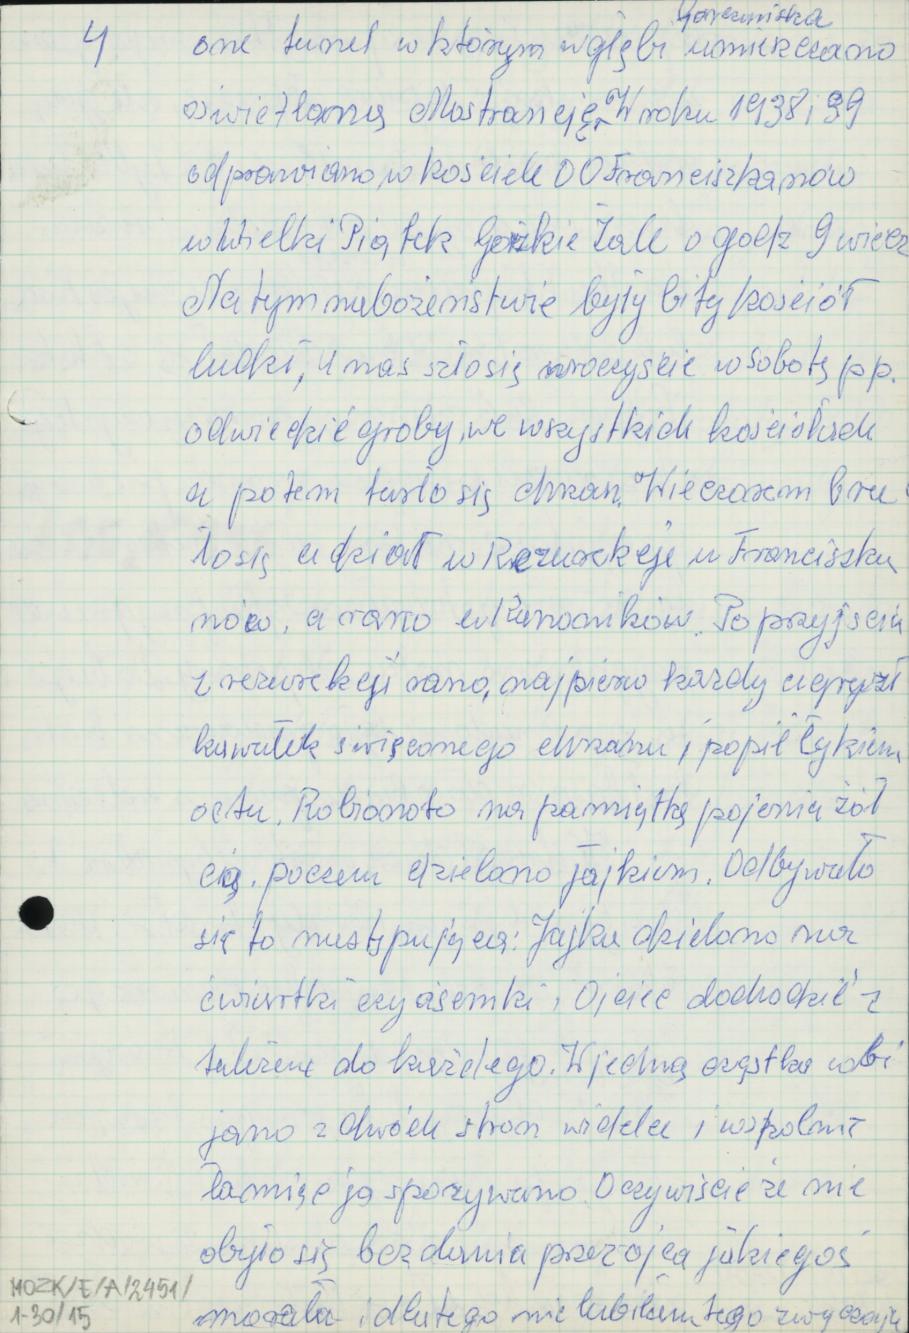 4
one tunel w którym w głębi umieszczano
oświetloną Mostrancję. W roku 1938 i 39
odprawiano w kościele OO Franciszkanów
w Wielki Piątek Gorzkie Żale o godz 9 wiecz
Na tym nabożeństwie były bity kościół
ludzi, u nas szło się uroczyście w sobotę pp.
odwiedzić groby, we wszystkich kościołach
a potem tarło się chrzan. Wieczorem bra
ło się udział w Rezurekcje u Franciszka
nów, a rano u Kanoników. Po przyjściu
z rezurekcji rano, najpierw każdy ugryzł
kawałek święconego chrzanu i popił łykiem
octu. Robiono to na pamiątkę pojenia żół
cią. poczem dzielono jajkiem. Odbywało
się to następująco: Jajka dzielono na
ćwiartki czy ósemki, Ojciec dochodził z
talerzem do każdego. W jedną cząstkę wbi
jano z dwóch stron widelce i wspólnie
łamiąc ją spożywano. Oczywiście że nie
obyło się bez dania przez ojca jakiegoś
morału i dlatego nie lubiłam tego zwyczaju
MOZK/E/A/2451/
1-30/15